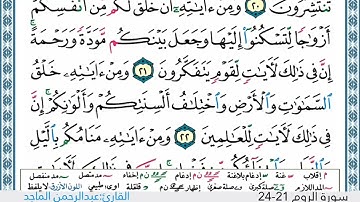 تَنتَشِرُونَ ٢٠ وَمِنْ ءَايَٰتِهِۦٓ أَنْ خَلَقَ لَكُم مِّنْ أَنفُسِكُمْ
أَزْوَٰجًا لِّتَسْكُنُوٓا۟ إِلَيْهَا وَجَعَلَ بَيْنَكُم مَّوَدَّةً وَرَحْمَةً ۚ
إِنَّ فِى ذَٰلِكَ لَءَايَٰتٍ لِّقَوْمٍ يَتَفَكَّرُونَ ٢١ وَمِنْ ءَايَٰتِهِۦ خَلْقُ
ٱلسَّمَٰوَٰتِ وَٱلْأَرْضِ وَٱخْتِلَٰفُ أَلْسِنَتِكُمْ وَأَلْوَٰنِكُمْ ۚ إِنَّ
فِى ذَٰلِكَ لَءَايَٰتٍ لِّلْعَٰلِمِينَ ٢٢ وَمِنْ ءَايَٰتِهِۦ مَنَامُكُم بِٱلَّيْلِ
سورة الروم 21-24
القارئ:عبدالرحمن الماجد